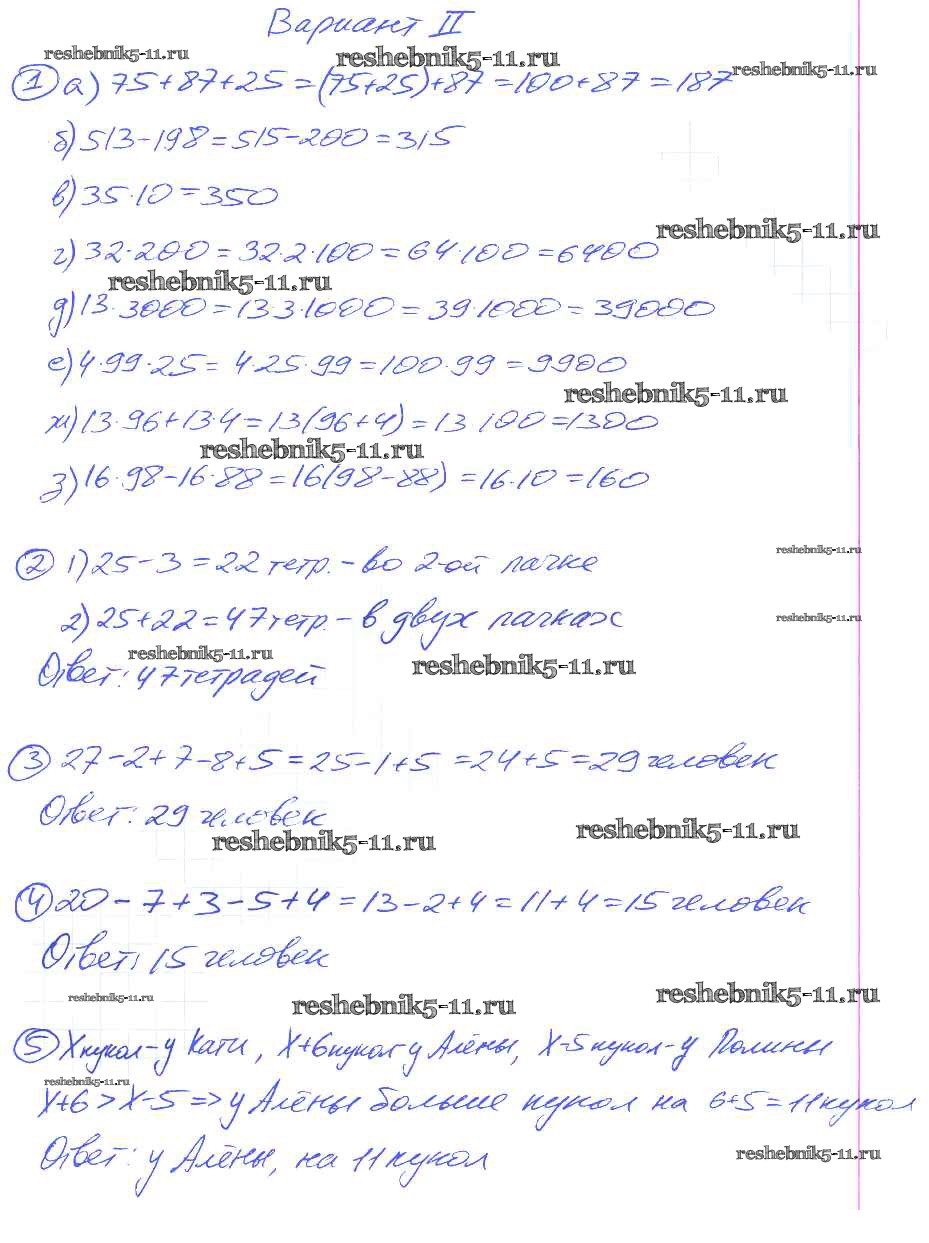 Вариант II
reshebnik5-11.ru reshebnik5-11.ru reshebnik5-11.ru
1 а) 75+87+25=(75+25)+87=100+87=187
б) 513-198=515-200=315
в) 35·10=350
reshebnik5-11.ru
г) 32·200=32·2·100=64·100=6400
reshebnik5-11.ru
д) 13·3000=13·3·1000=39·1000=39000
е) 4·99·25=4·25·99=100·99=9900
reshebnik5-11.ru
ж) 13·96+13·4=13(96+4)=13·100=1300
reshebnik5-11.ru
з) 16·98-16·88=16(98-88)=16·10=160
reshebnik5-11.ru
2 1) 25-3=22 тетр.-во 2-ой пачке
reshebnik5-11.ru
2) 25+22=47 тетр.-в двух пачках
reshebnik5-11.ru reshebnik5-11.ru
Ответ: 47 тетрадей
3 27-2+7-8+5=25-1+5=24+5=29 человек
Ответ: 29 человек
reshebnik5-11.ru reshebnik5-11.ru
4 20-7+3-5+4=13-2+4=11+4=15 человек
Ответ: 15 человек
reshebnik5-11.ru reshebnik5-11.ru reshebnik5-11.ru
5 X кукол-у Кати, X+6 кукол у Алёны, X-5 кукол-у Полины
reshebnik5-11.ru
X+6>X-5=>у Алёны больше кукол на 6+5=11 кукол
Ответ: у Алёны, на 11 кукол
reshebnik5-11.ru